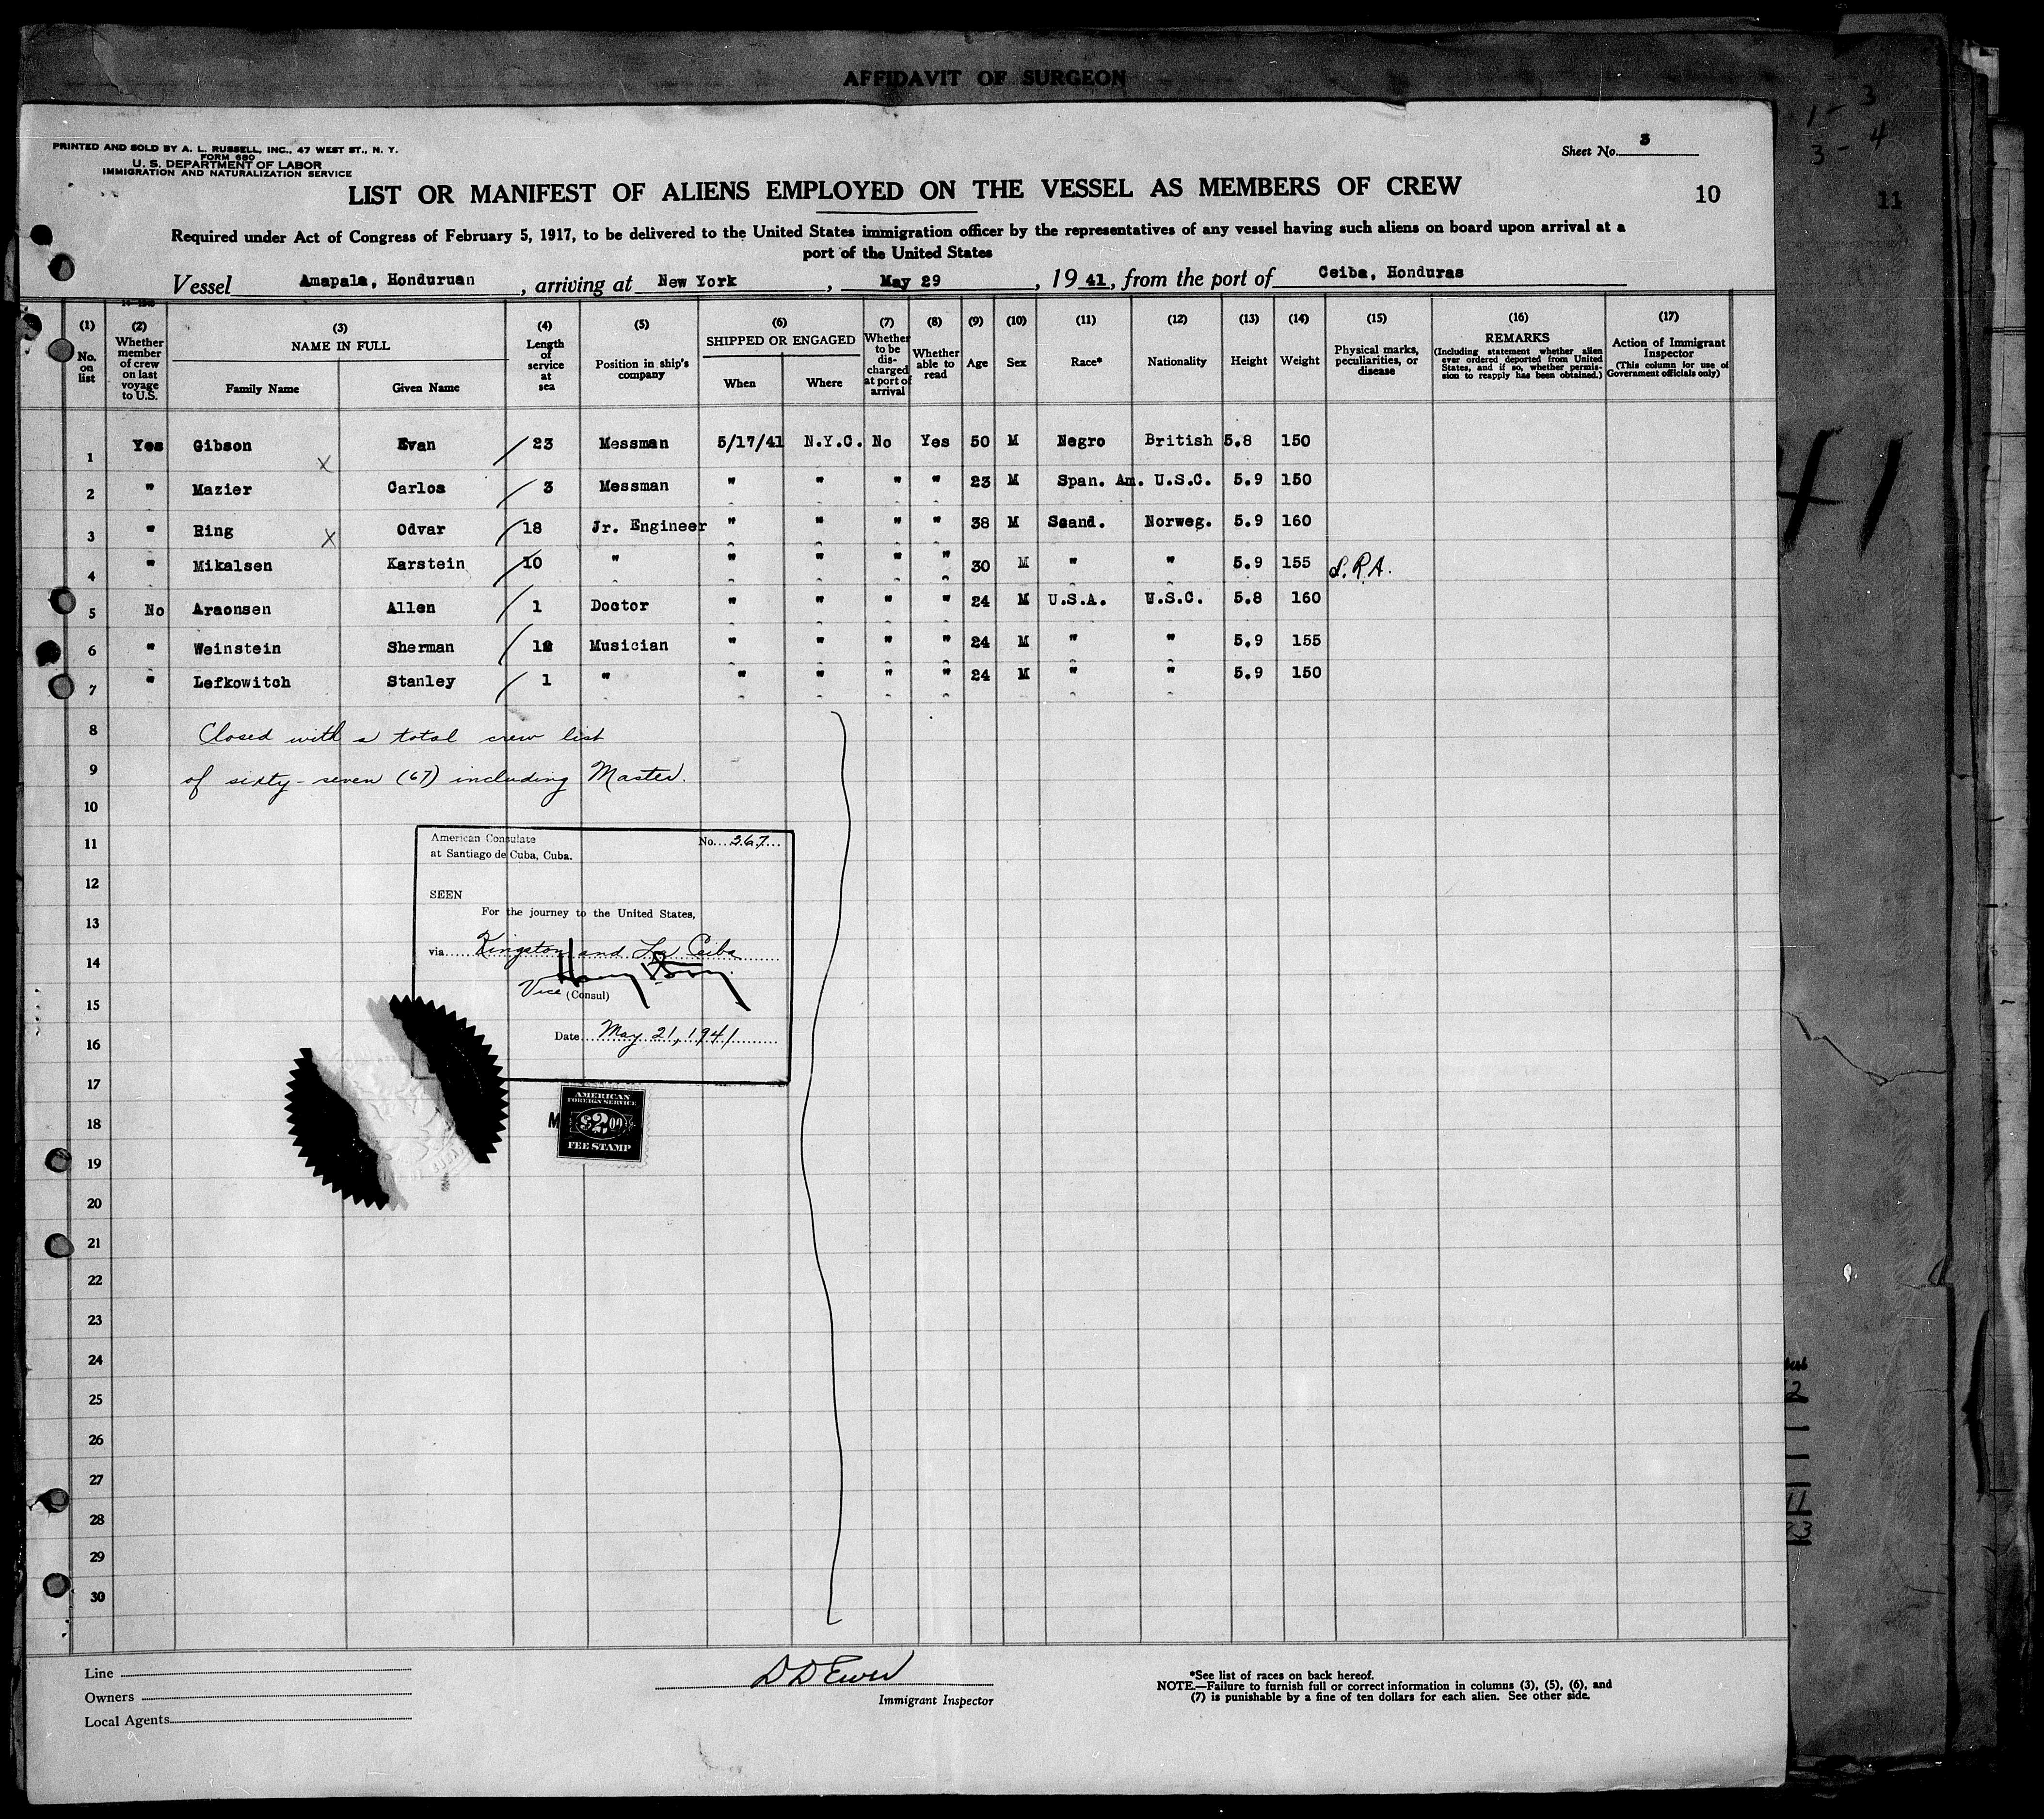 AFFIDAVIT OF SURGEON
1 - 3
3 - 4
11
41
PRINTED AND SOLD BY A. L. RUSSELL, INC., 47 WEST ST., N. Y.
FORM 680
U. S. DEPARTMENT OF LABOR
IMMIGRATION AND NATURALIZATION SERVICE
Sheet No. 3
LIST OR MANIFEST OF ALIENS EMPLOYED ON THE VESSEL AS MEMBERS OF CREW
10
Required under Act of Congress of February 5, 1917, to be delivered to the United States immigration officer by the representatives of any vessel having such aliens on board upon arrival at a
port of the United States
Vessel Amapala, Honduruan, arriving at New York, May 29, 1941, from the port of Ceiba, Honduras
(1) No. on list
(2) Whether member of crew on last voyage to U.S.
(3) NAME IN FULL
Family Name Given Name
(4) Length of service at sea
(5) Position in ship's company
(6) SHIPPED OR ENGAGED
When Where
(7) Whether to be discharged at port of arrival
(8) Whether able to read
(9) Age
(10) Sex
(11) Race*
(12) Nationality
(13) Height
(14) Weight
(15) Physical marks, peculiarities, or disease
(16) REMARKS (Including statement whether alien ever ordered deported from United States, and if so, whether permission to reapply has been obtained.)
(17) Action of Immigrant Inspector (This column for use of Government officials only)
1 Yes Gibson x Evan / 23 Messman 5/17/41 N.Y.C. No Yes 50 M Negro British 5.8 150
2 " Mazier Carlos / 3 Messman " " " " 23 M Span. Am. U.S.C. 5.9 150
3 " Ring x Odvar / 18 Jr. Engineer " " " " 38 M Scand. Norweg. 5.9 160
4 " Mikalsen Karstein / 10 " " " " " 30 M " " 5.9 155 L.R.A.
5 No Araonsen Allen / 1 Doctor " " " " 24 M U.S.A. U.S.C. 5.8 160
6 " Weinstein Sherman / Musician " " " " 24 M " " 5.9 155
7 " Lefkowitch Stanley / 1 " " " " " 24 M " " 5.9 150
8 Closed with a total crew list
9 of sixty-seven (67) including Master.
10
11
12
13
14
15
16
17
18
19
20
21
22
23
24
25
26
27
28
29
30
American Consulate No. 367
at Santiago de Cuba, Cuba.
SEEN
For the journey to the United States,
via Kingston and La Ceiba
Vice (Consul)
Date May 21, 1941
AMERICAN
FOREIGN SERVICE
$2.00
FEE STAMP
Line
Owners
Local Agents
Immigrant Inspector
*See list of races on back hereof.
NOTE.—Failure to furnish full or correct information in columns (3), (5), (6), and
(7) is punishable by a fine of ten dollars for each alien. See other side.